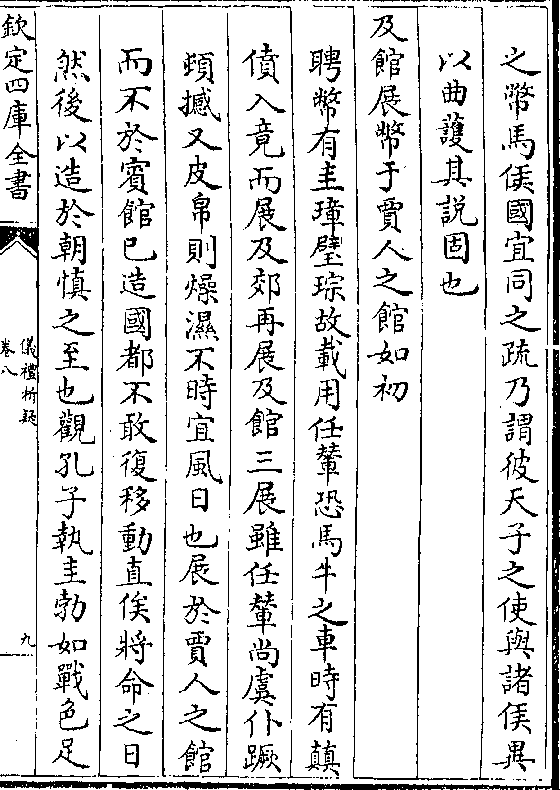 之幣馬侯國宜同之疏乃謂彼天子之使與諸侯異
以曲護其說固也
及館展幣于賈人之館如初
聘幣有圭璋璧琮故載用任輦恐馬牛之車時有顛
僨入竟而展及郊再展及館三展雖任輦尚虞仆蹶
頓撼又皮帛則燥濕不時宜風日也展於賈人之館
而不於賓館已造國都不敢復移動直俟將命之日
然後以造於朝慎之至也觀孔子執圭勃如戰色足
欽定四庫全書
儀禮析疑
卷八
九